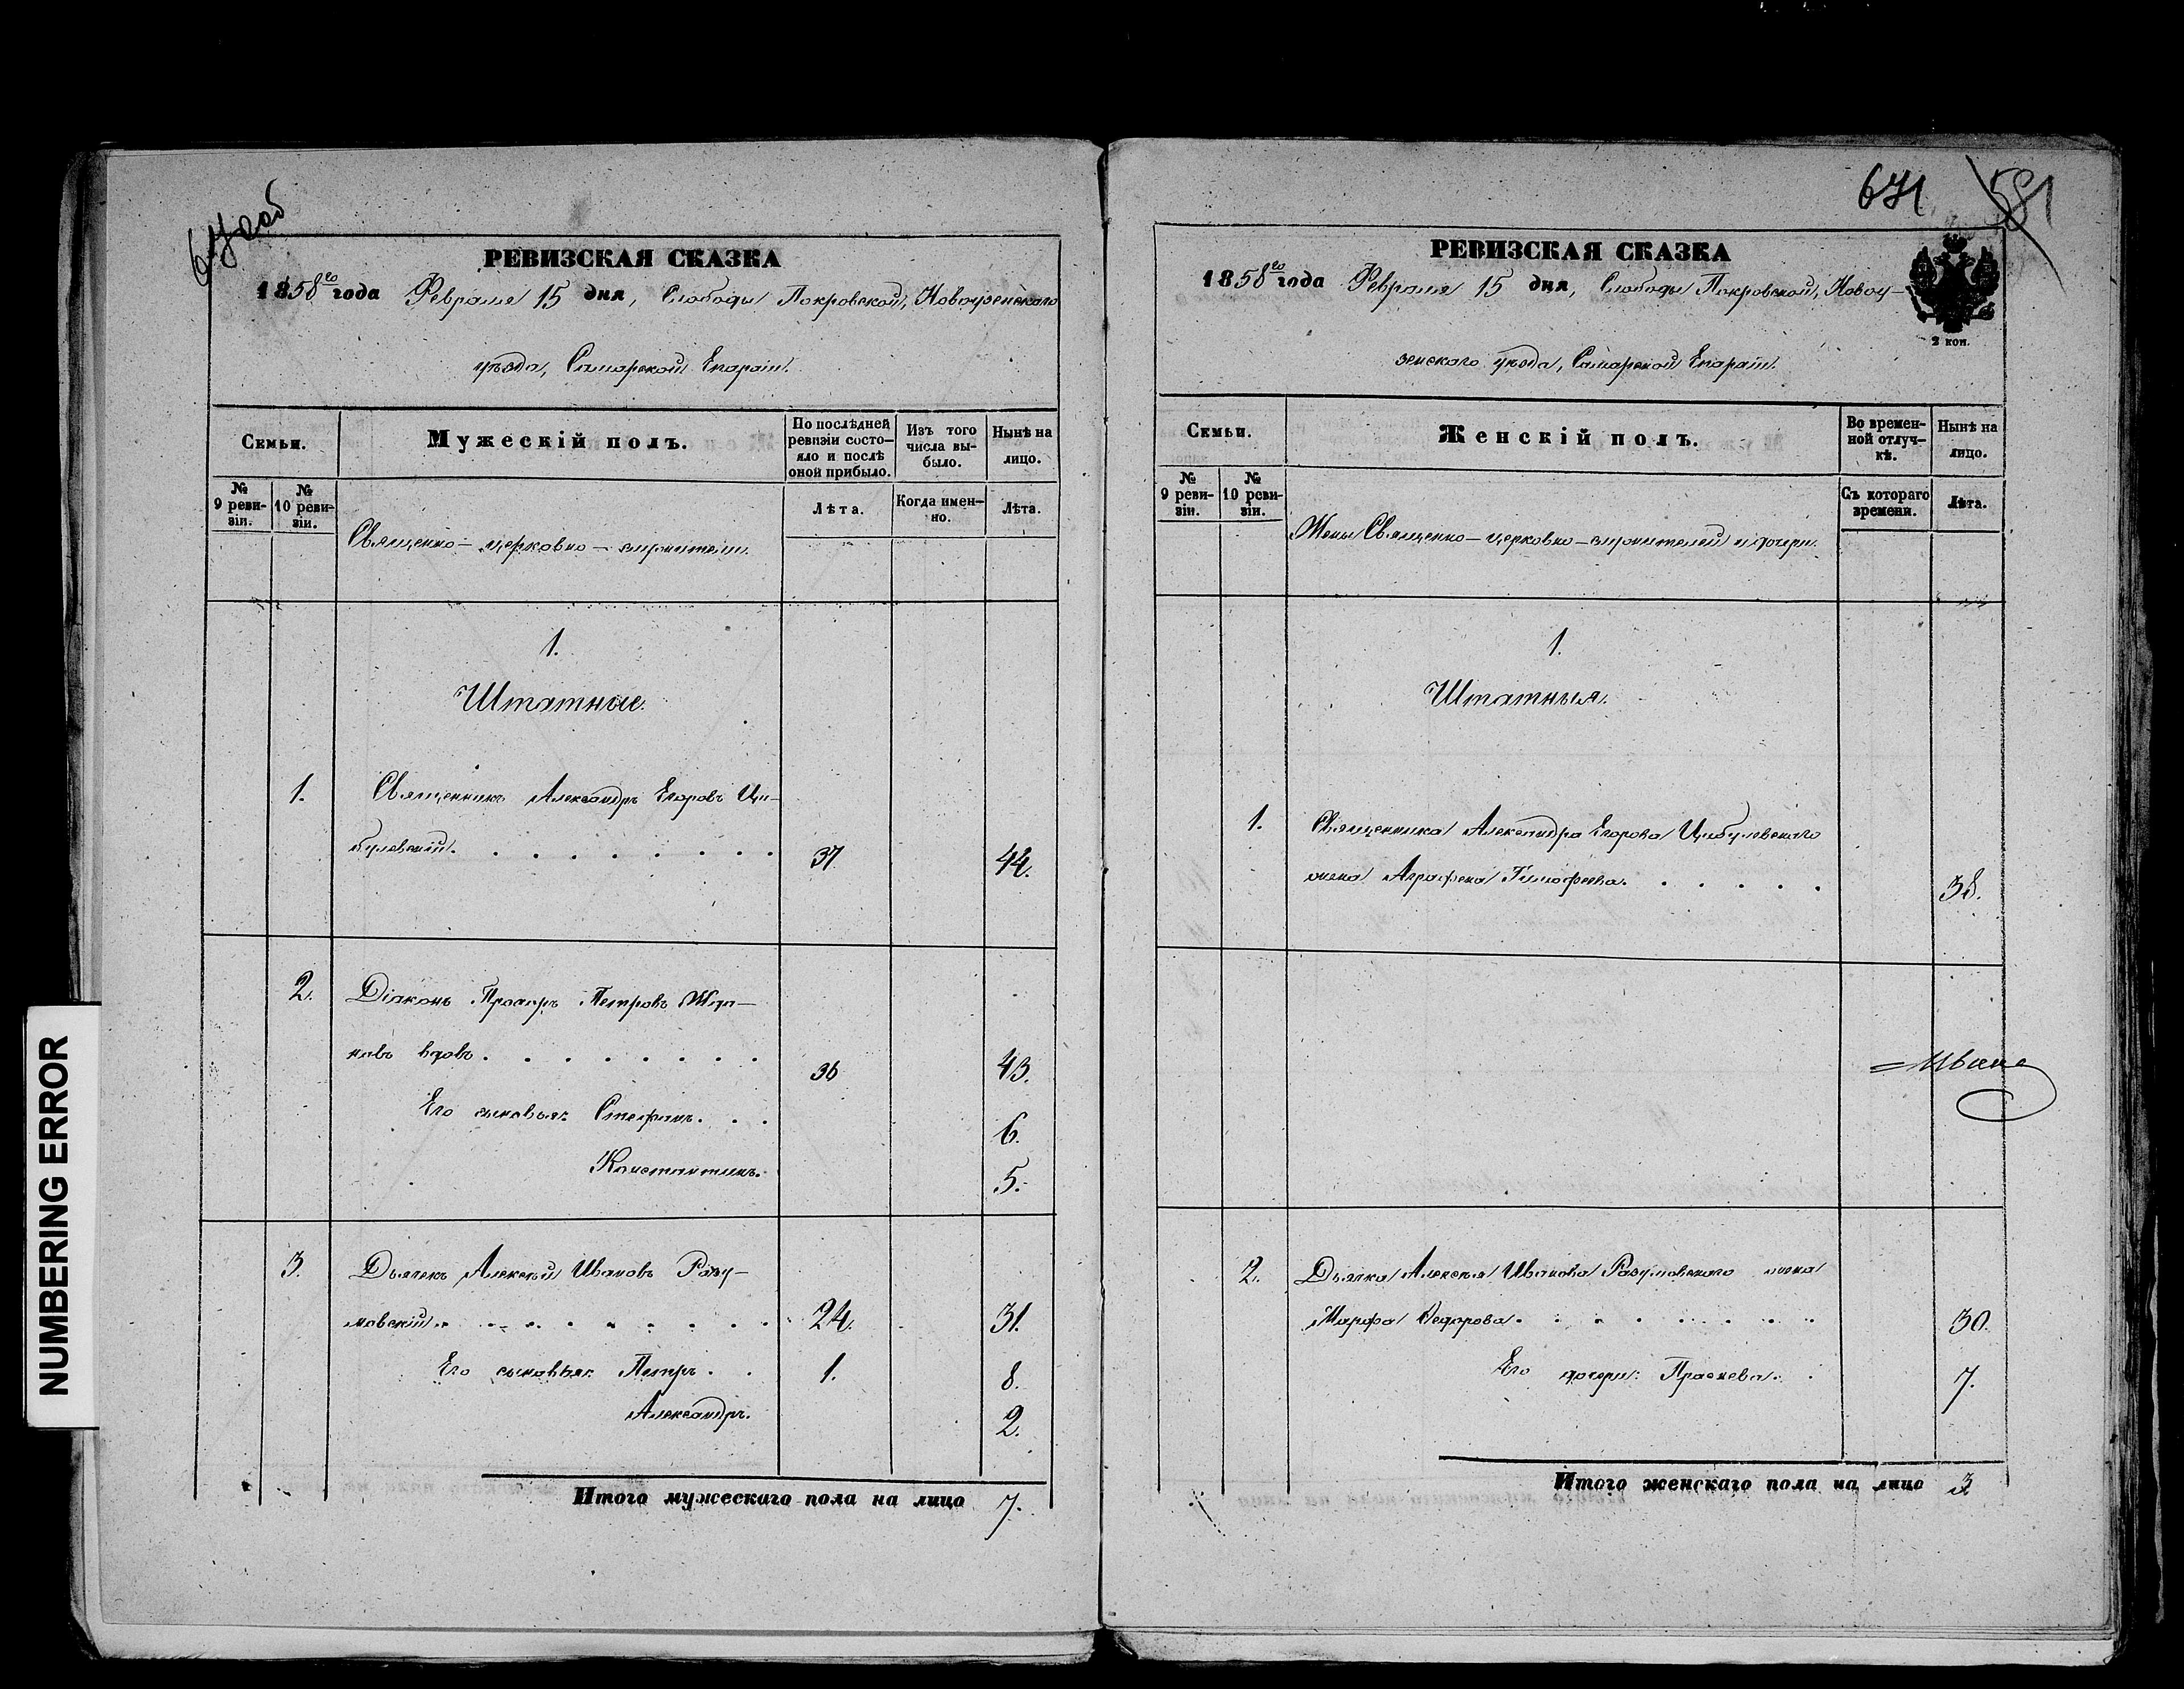 РЕВИЗСКАЯ СКАЗКА
1858го года Февраля 15 дня, Слободы Покровской, Новоузенскаго
уѣзда, Самарской Епархіи.
Семьи.
Мужескій полъ.
По послѣдней ревизіи состояло и послѣ оной прибыло.
Изъ того числа выбыло.
Нынѣ на лицо.
№ 9 ревизіи.
№ 10 ревизіи.
Священно-церковно-служители.
Лѣта.
Когда именно.
Лѣта.
1.
Штатные.
1. Священникъ Александръ Егоровъ Ци-
булевскій. 37 44.
2. Діаконъ Петровъ
вдовъ. 36 43.
Его сыновья: Стефанъ. 6.
Константинъ. 5.
3. Дьячекъ Алексѣй Ивановъ Разу-
мовскій. 24. 31.
Его сыновья: Петръ. 1. 8.
Александръ. 2.
Итого мужескаго пола на лицо 7.
671 581
РЕВИЗСКАЯ СКАЗКА
1858го года Февраля 15 дня, Слободы Покровской, Новоу-
зенскаго уѣзда, Самарской Епархіи.
2 коп.
Семьи.
Женскій полъ.
Во временной отлучкѣ.
Нынѣ на лицо.
№ 9 ревизіи.
№ 10 ревизіи.
Жены Священно-церковно-служителей и дочери.
Съ котораго времени.
Лѣта.
1.
Штатныя.
1. Священника Александра Егорова Цибулевскаго
жена Аграфена Тимофеева. 38.
Ивана
2. Дьячка Алексѣя Иванова Разумовскаго жена
Марфа Федорова. 30.
Его дочери: Прасковья. 7.
Итого женскаго пола на лицо 3
NUMBERING ERROR